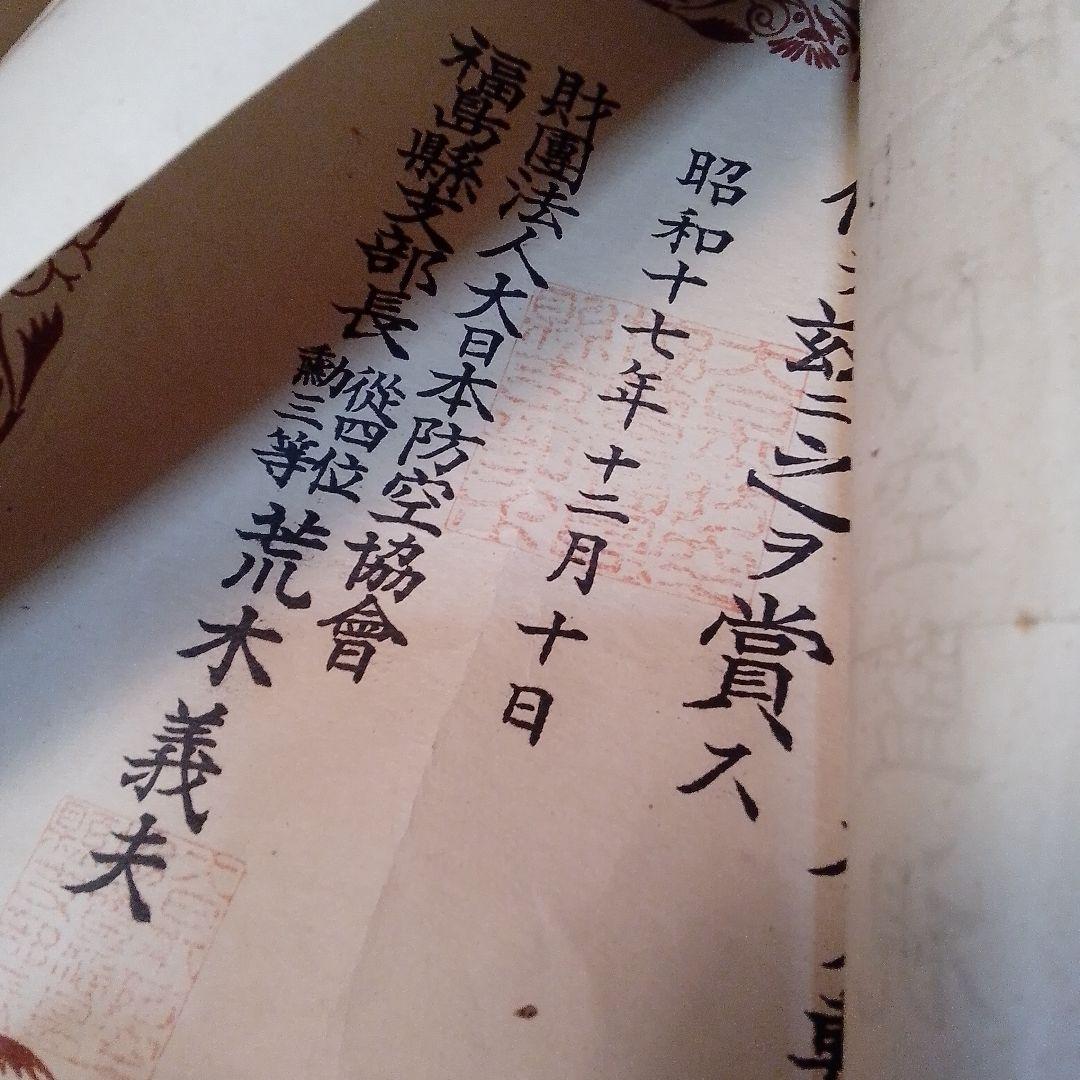 玆ニ之ヲ賞ス
昭和十七年十二月十日
財團法人大日本防空協會
福島縣支部長 從四位 勳三等 荒木義夫